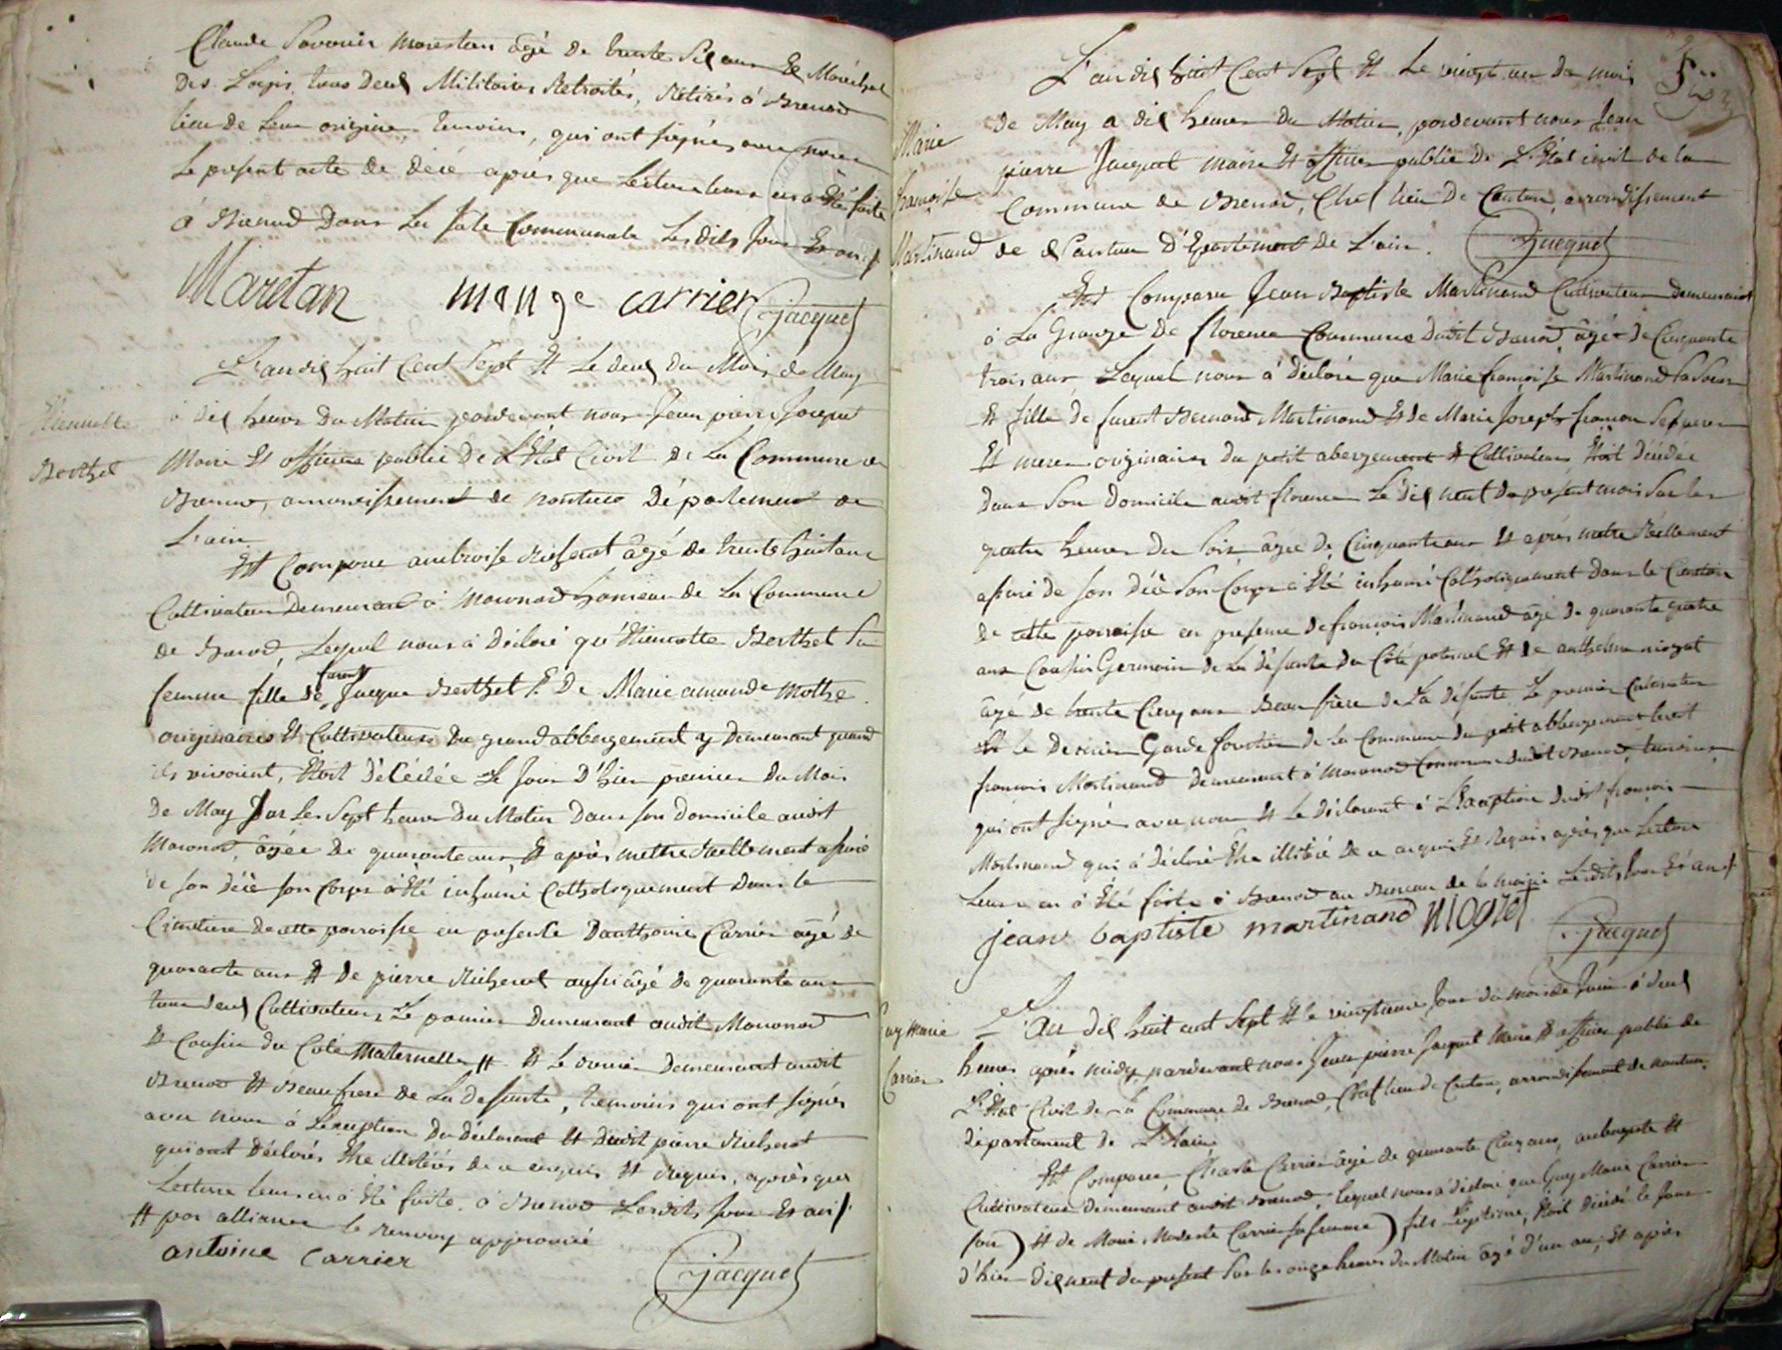 Claude Savarin Marestan âgé de trente Six ans Et Maréchal
Des Logis, tous deux Militaires Retraités, Retirés à Brenod
lieu de Leur origine, temoins, qui ont signés avec nous
Le present acte de décé après que Lecture Leur en a été faite
à Brenod Dans La Sale Communale Lesdits Jour Et an
Maretan mange carrier Jacquet
L'an dix huit Cent Sept Et Le deux Du Mois de May
à dix heures Du Matin pardevant nous Jean pierre Jacquet
Etiennette
Berthet
Maire Et officier public De L'Etat Civil de La Commune de
Brenod, arrondissement de nantua Département de
L'ain
Est Comparu ambroise Richerot âgé de trente huit ans
Cultivateur Demeurant à Macconod hameau de La Commune
de Brenod, Lequel nous à Déclaré qu'Etiennette Berthet Sa
femme fille de furent Jacque Berthet Et De Marie amande Mothe
originaires Et Cultivateurs du grand abbergement y Demeurant quand
ils vivoient, Etoit Décédée Le Jour D'hier premier Du Mois
De May Sur Les Sept heures Du Matin Dans son Domicile audit
Maconod, âgée De quarante ans, Et après m'etre Réellement assuré
de son décè son Corps à Eté inhumé Catholiquement Dans le
Cimetiere de cette parroisse en presence D'anthoine Carrier âgé de
quarante ans Et De pierre Richerot aussi âgé de quarante ans
tous deux Cultivateurs, Le premier Demeurant audit Maconod
Et Cousin du Coté Maternelle # Et Le dernier Demeurant audit
Brenod Et Beaufrere de La Defunte, temoins qui ont signés
avec nous à L'exception Du Déclarant Et Dudit pierre Richerot
qui ont Déclarés Etre illitérés de ce enquis Et Requis, après que
Lecture leur en à Eté faite à Brenod Lesdits Jour Et an
# par alliance le renvoy approuvé
antoine Carrier
Jacquet
L'an dix huit Cent Sept Et Le vingt un du mois
de May a dix heures Du Matin, pardevant nous Jean
Marie
françoise
Martinand
pierre Jacquet maire Et officier public De L'Etat civil de la
Commune de Brenod, Chef lieu De Canton, arrondissement
de Département De L'ain. Jacquet
Est Comparu Jean Baptiste Martinand Cultivateur Demeurant
à La Grange De florence Commune dudit Brenod, âgé de Cinquante
trois ans Lequel nous à déclaré que Marie françoise Martinand Sa Soeur
Et fille de furent Bernard Martinand Et de Marie Joseph Ses pere
Et mere originaires du petit abergement Et Cultivateurs Etoit Décédée
Dans Son Domicile audit florence Le dix neuf du présent mois Sur les
quatre heures Du Soir âgée de Cinquante ans Et après m'etre Réellement
assuré de son Décè Son Corps à Eté inhumé Catholiquement Dans le
de cette parroisse en presence de françois Martinand âgé de quarante quatre
ans Cousin Germain de La défunte du Côté paternel Et de anthelme niogret
âgé de trente Cinq ans Beau frère de La défunte Le premier Cultivateur
Et le Dernier Garde forêtier de la Commune du petit abbergement
françois Martinand demeurant à Maconod Commune dudit Brenod, temoins
qui ont signés avec nous Et Le Déclarant à L'Exception dudit françois
Martinand qui à Déclaré Etre illitéré De ce enquis Et Requis après que Lecture
Leur en à Eté faite à Brenod au Bureau de la mairie Lesdits Jour Et an
jean baptiste martinand NIOGRET Jacquet
Guy Marie
Carrier
L'an dix huit cent sept Et le vingtieme Jour du mois de Juin à deux
heures après midy, pardevant nous Jean pierre Jacquet Maire Et officier public de
L'Etat Civil de la Commune de Brenod, Chef lieu de Canton, arrondissement de nantua
département de L'ain,
Est Comparu Charle Carrier âgé de quarante Cinq ans, aubergiste Et
Cultivateur Demeurant audit Brenod, Lequel nous à déclaré que Guy Marie Carrier
son) Et de Marie Modeste Carrier sa femme) fils Légitime, Etoit décédé le Jour
d'hier dix neuf du présent Sur les onze heures du Matin âgé d'un an, Et après